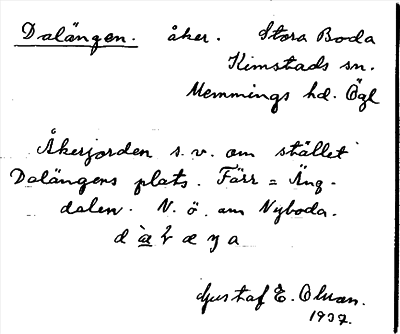 Dalängen. åker. Stora Boda
Kimstads sn.
Memmings hd. Ögl
Åkerjorden s.v. om stället
Dalängens plats. Färr = Äng-
dalen. N. ö. om Nyboda.
Gustaf E. Olsson.
1937.